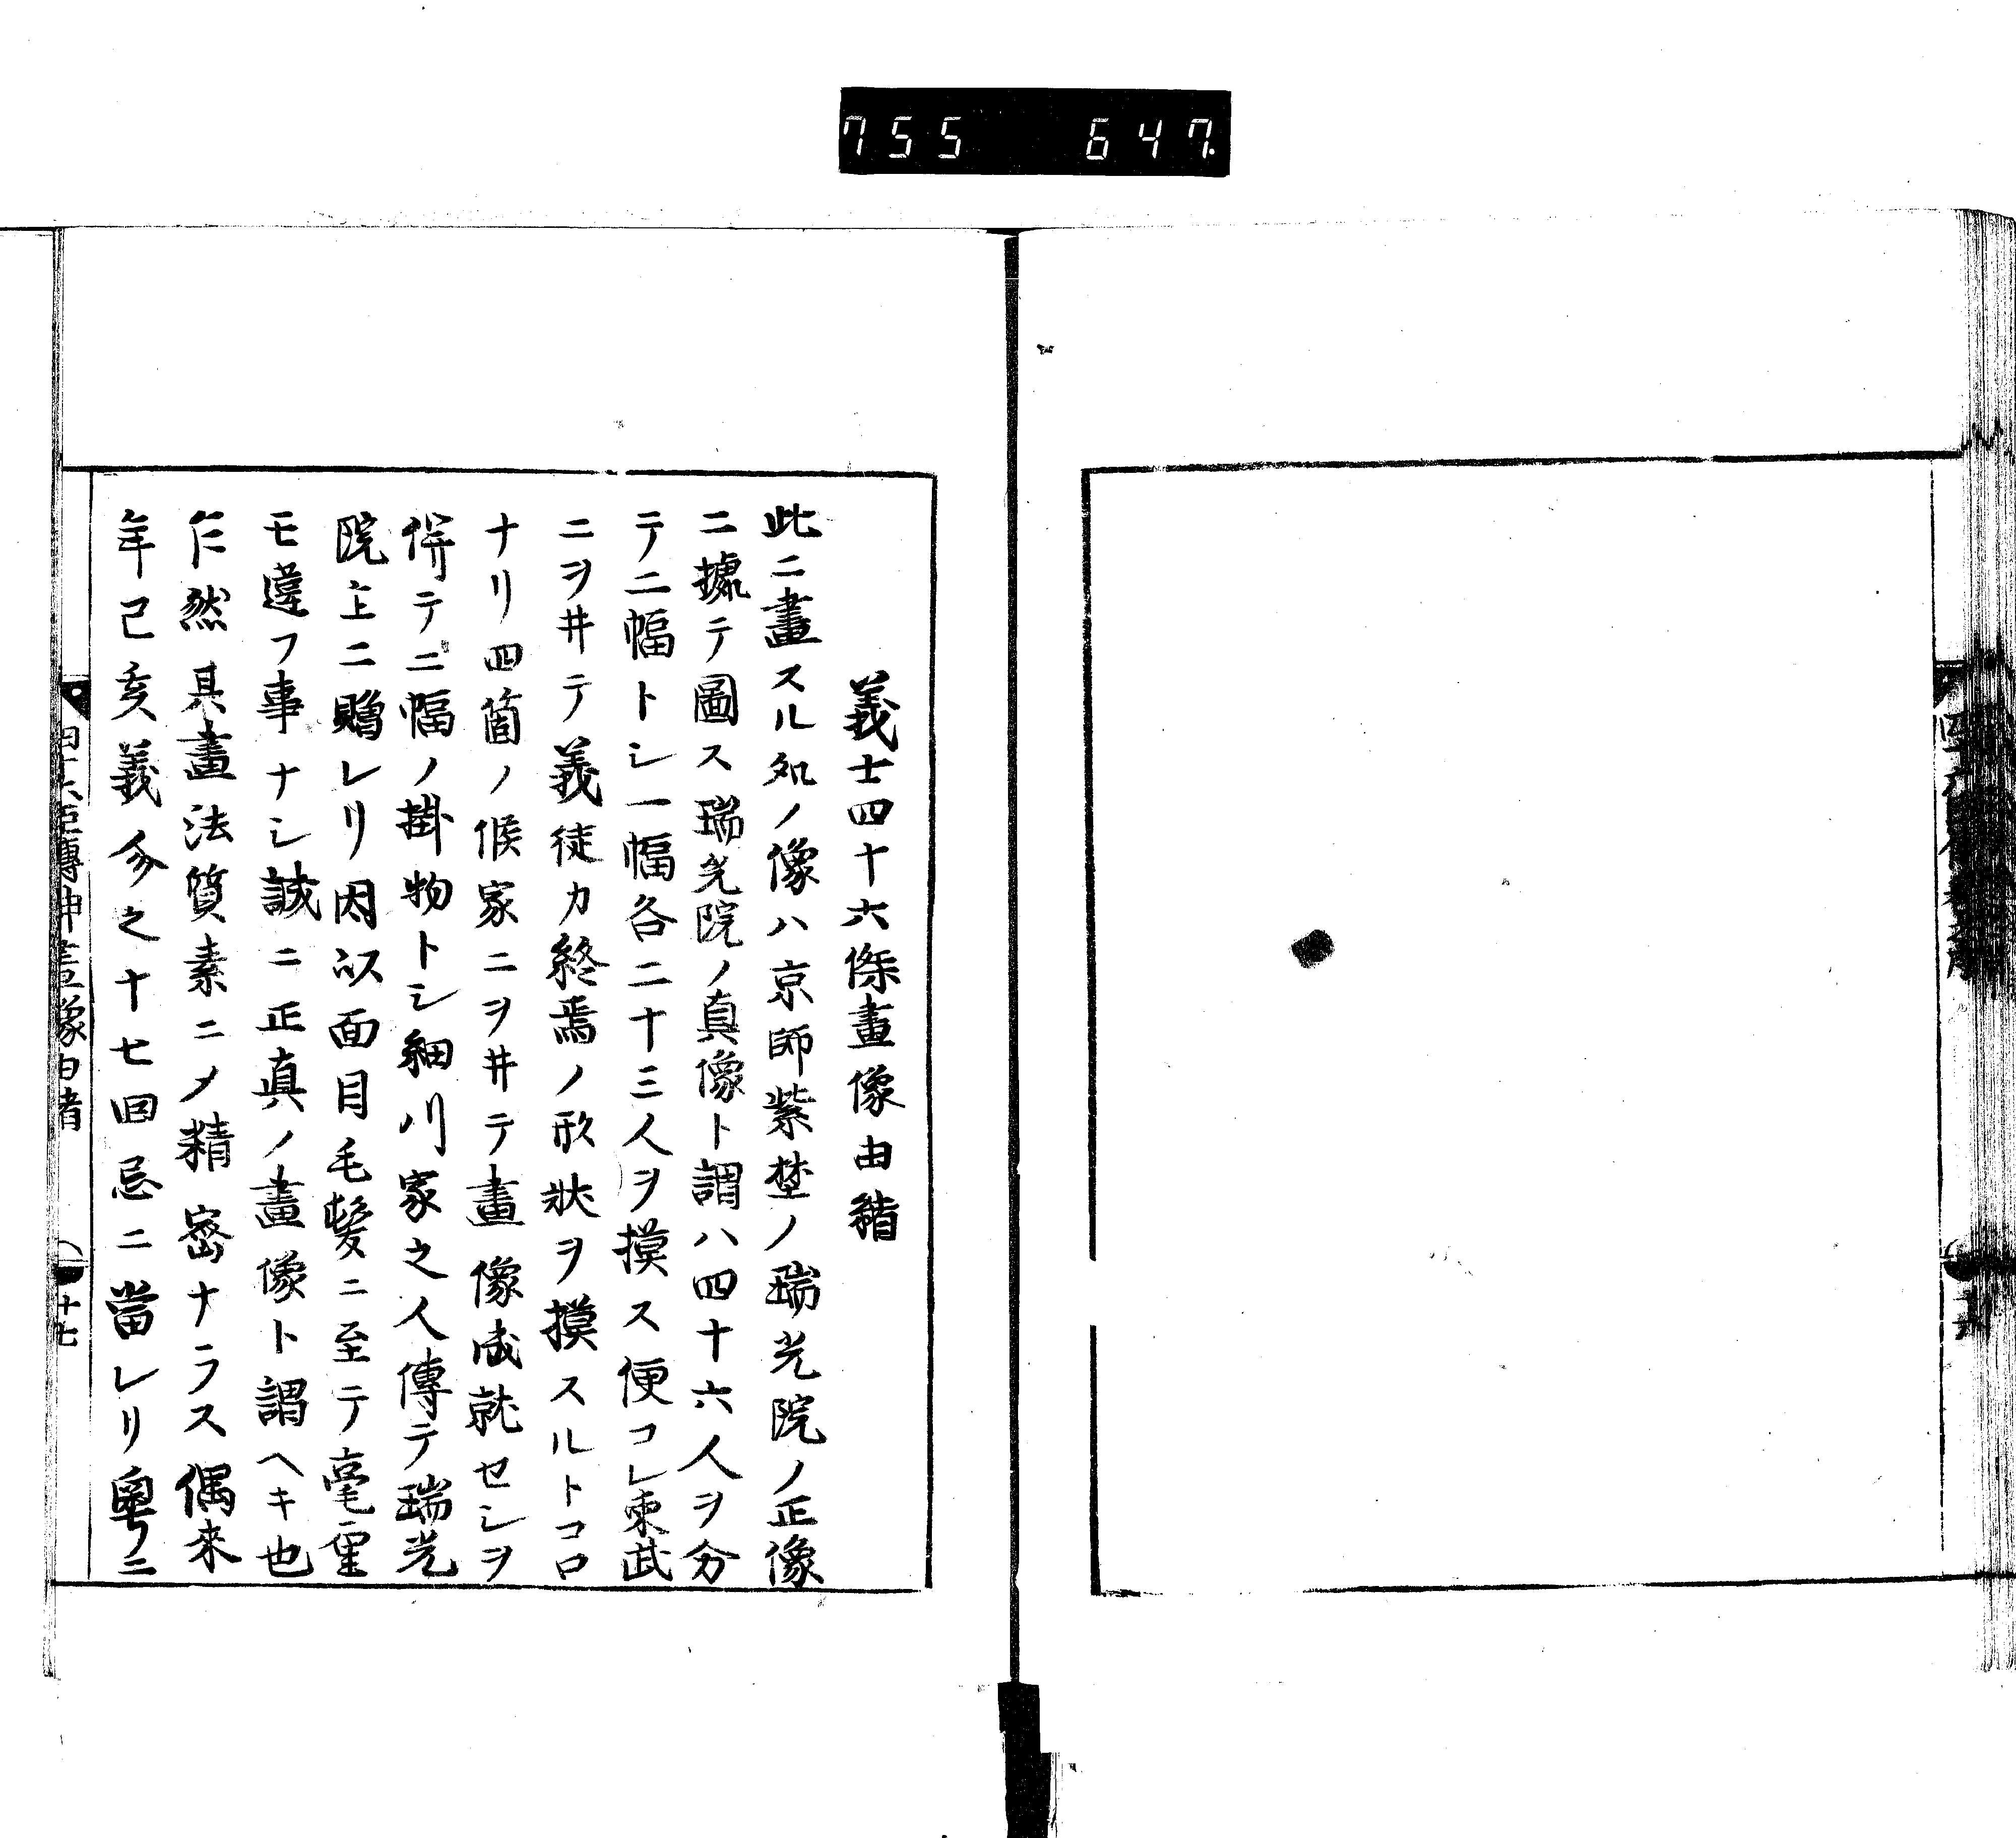 755 647
義士四十六條畫像由緒
此ニ畫スル処ノ像ハ京師紫埜ノ瑞光院ノ正像
ニ據テ圖ス瑞光院ノ真像ト謂ハ四十六人ヲ分
テ二幅トシ一幅各二十三人ヲ摸ス便コレ東武
ニヲ井テ義徒カ終焉ノ形狀ヲ摸スルトコロ
ナリ四箇ノ候家ニヲ井テ畫像成就セシヲ
併テ二幅ノ掛物トシ細川家之人傳テ瑞光
院上ニ贈レリ因以面目毛髪ニ至テ毫厘
モ違フ事ナシ誠ニ正真ノ畫像ト謂ヘキ也
乍然具畫法質素ニメ精密ナラス偶来
年己亥義分之十七回忌ニ當レリ粤ニ
十七